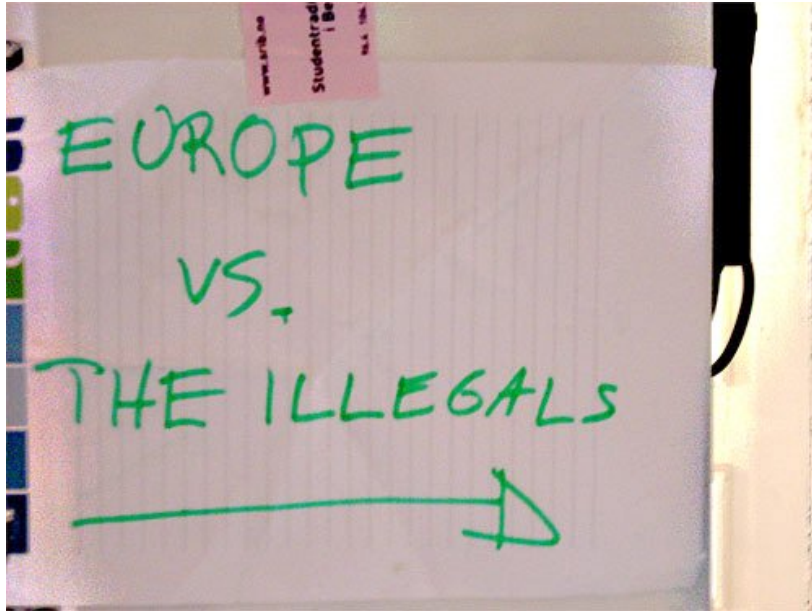 www.srib.no
Studentradi
i Be
EUROPE
VS.
THE ILLEGALS